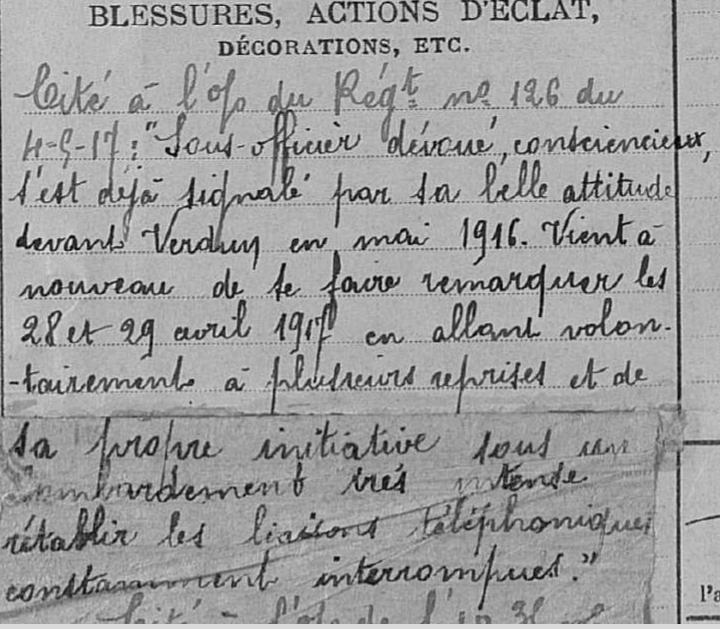 BLESSURES, ACTIONS D'ÉCLAT,
DÉCORATIONS, ETC.
Cité à l'o/o du Régt. no 126 du
4-5-17: "Sous-officier dévoué, consciencieux,
s'est déjà signalé par sa belle attitude
devant Verdun en mai 1916. Vient à
nouveau de se faire remarquer les
28 et 29 avril 1917 en allant volon-
-tairement à plusieurs reprises et de
sa propre initiative sous un
bombardement très intense
rétablir les liaisons téléphoniques
constamment interrompues."
Cité à l'o/o de
l'a